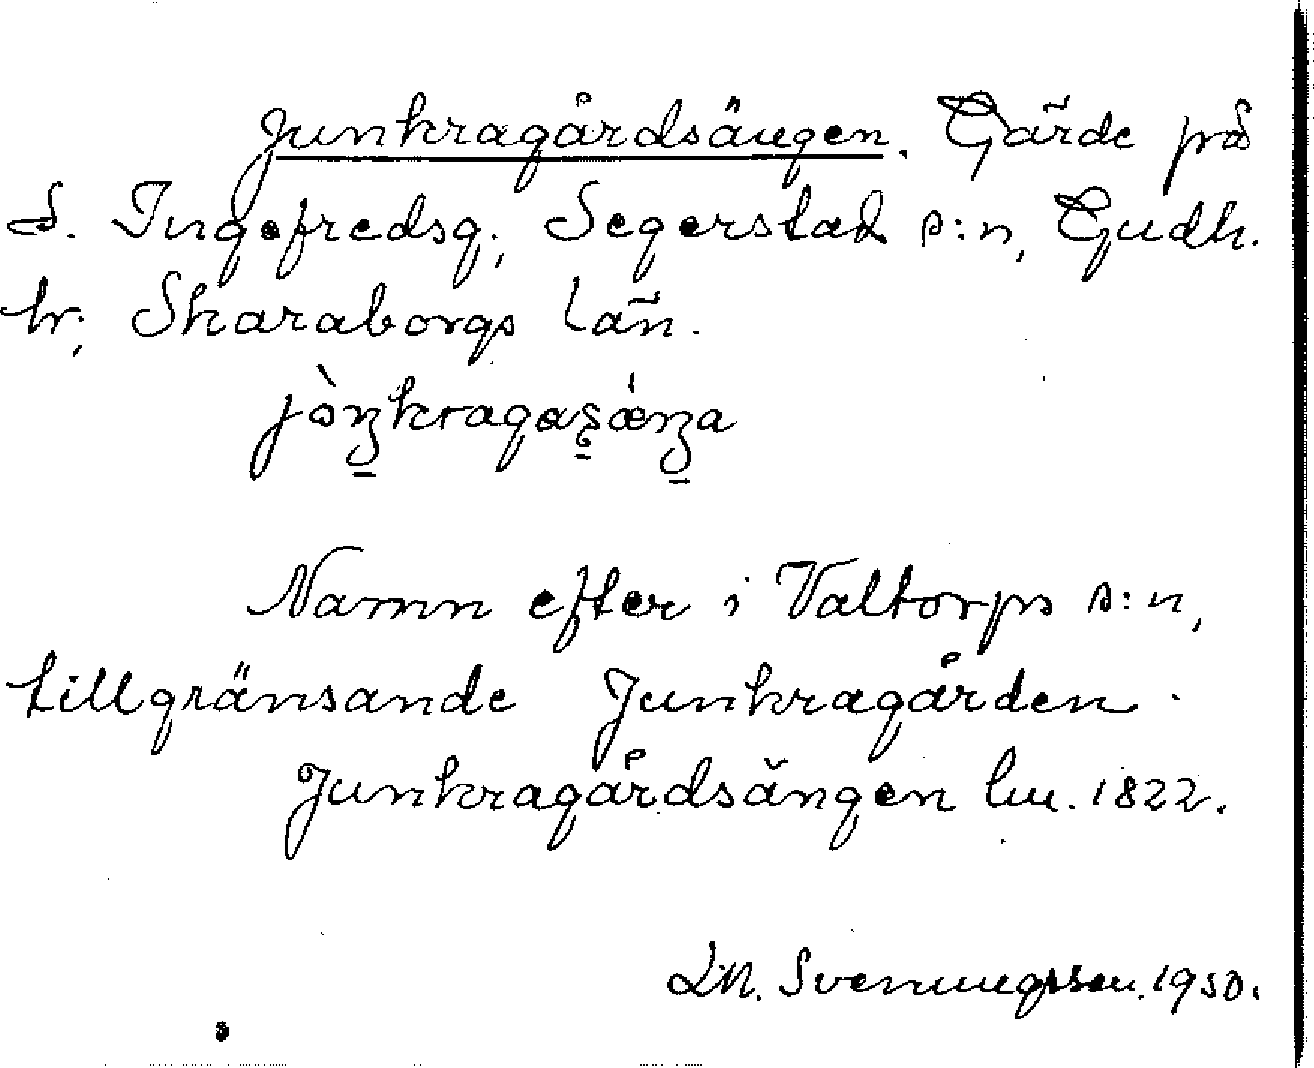 Junkragårdsängen. Gärde på
S. Ingefredsg., Segerstad s:n, Gudh.
hr, Skaraborgs län.
Namn efter i Valtorps s:n,
tillgränsande Junkragården.
Junkragårdsängen lm. 1822.
Svenningsson. 1950.